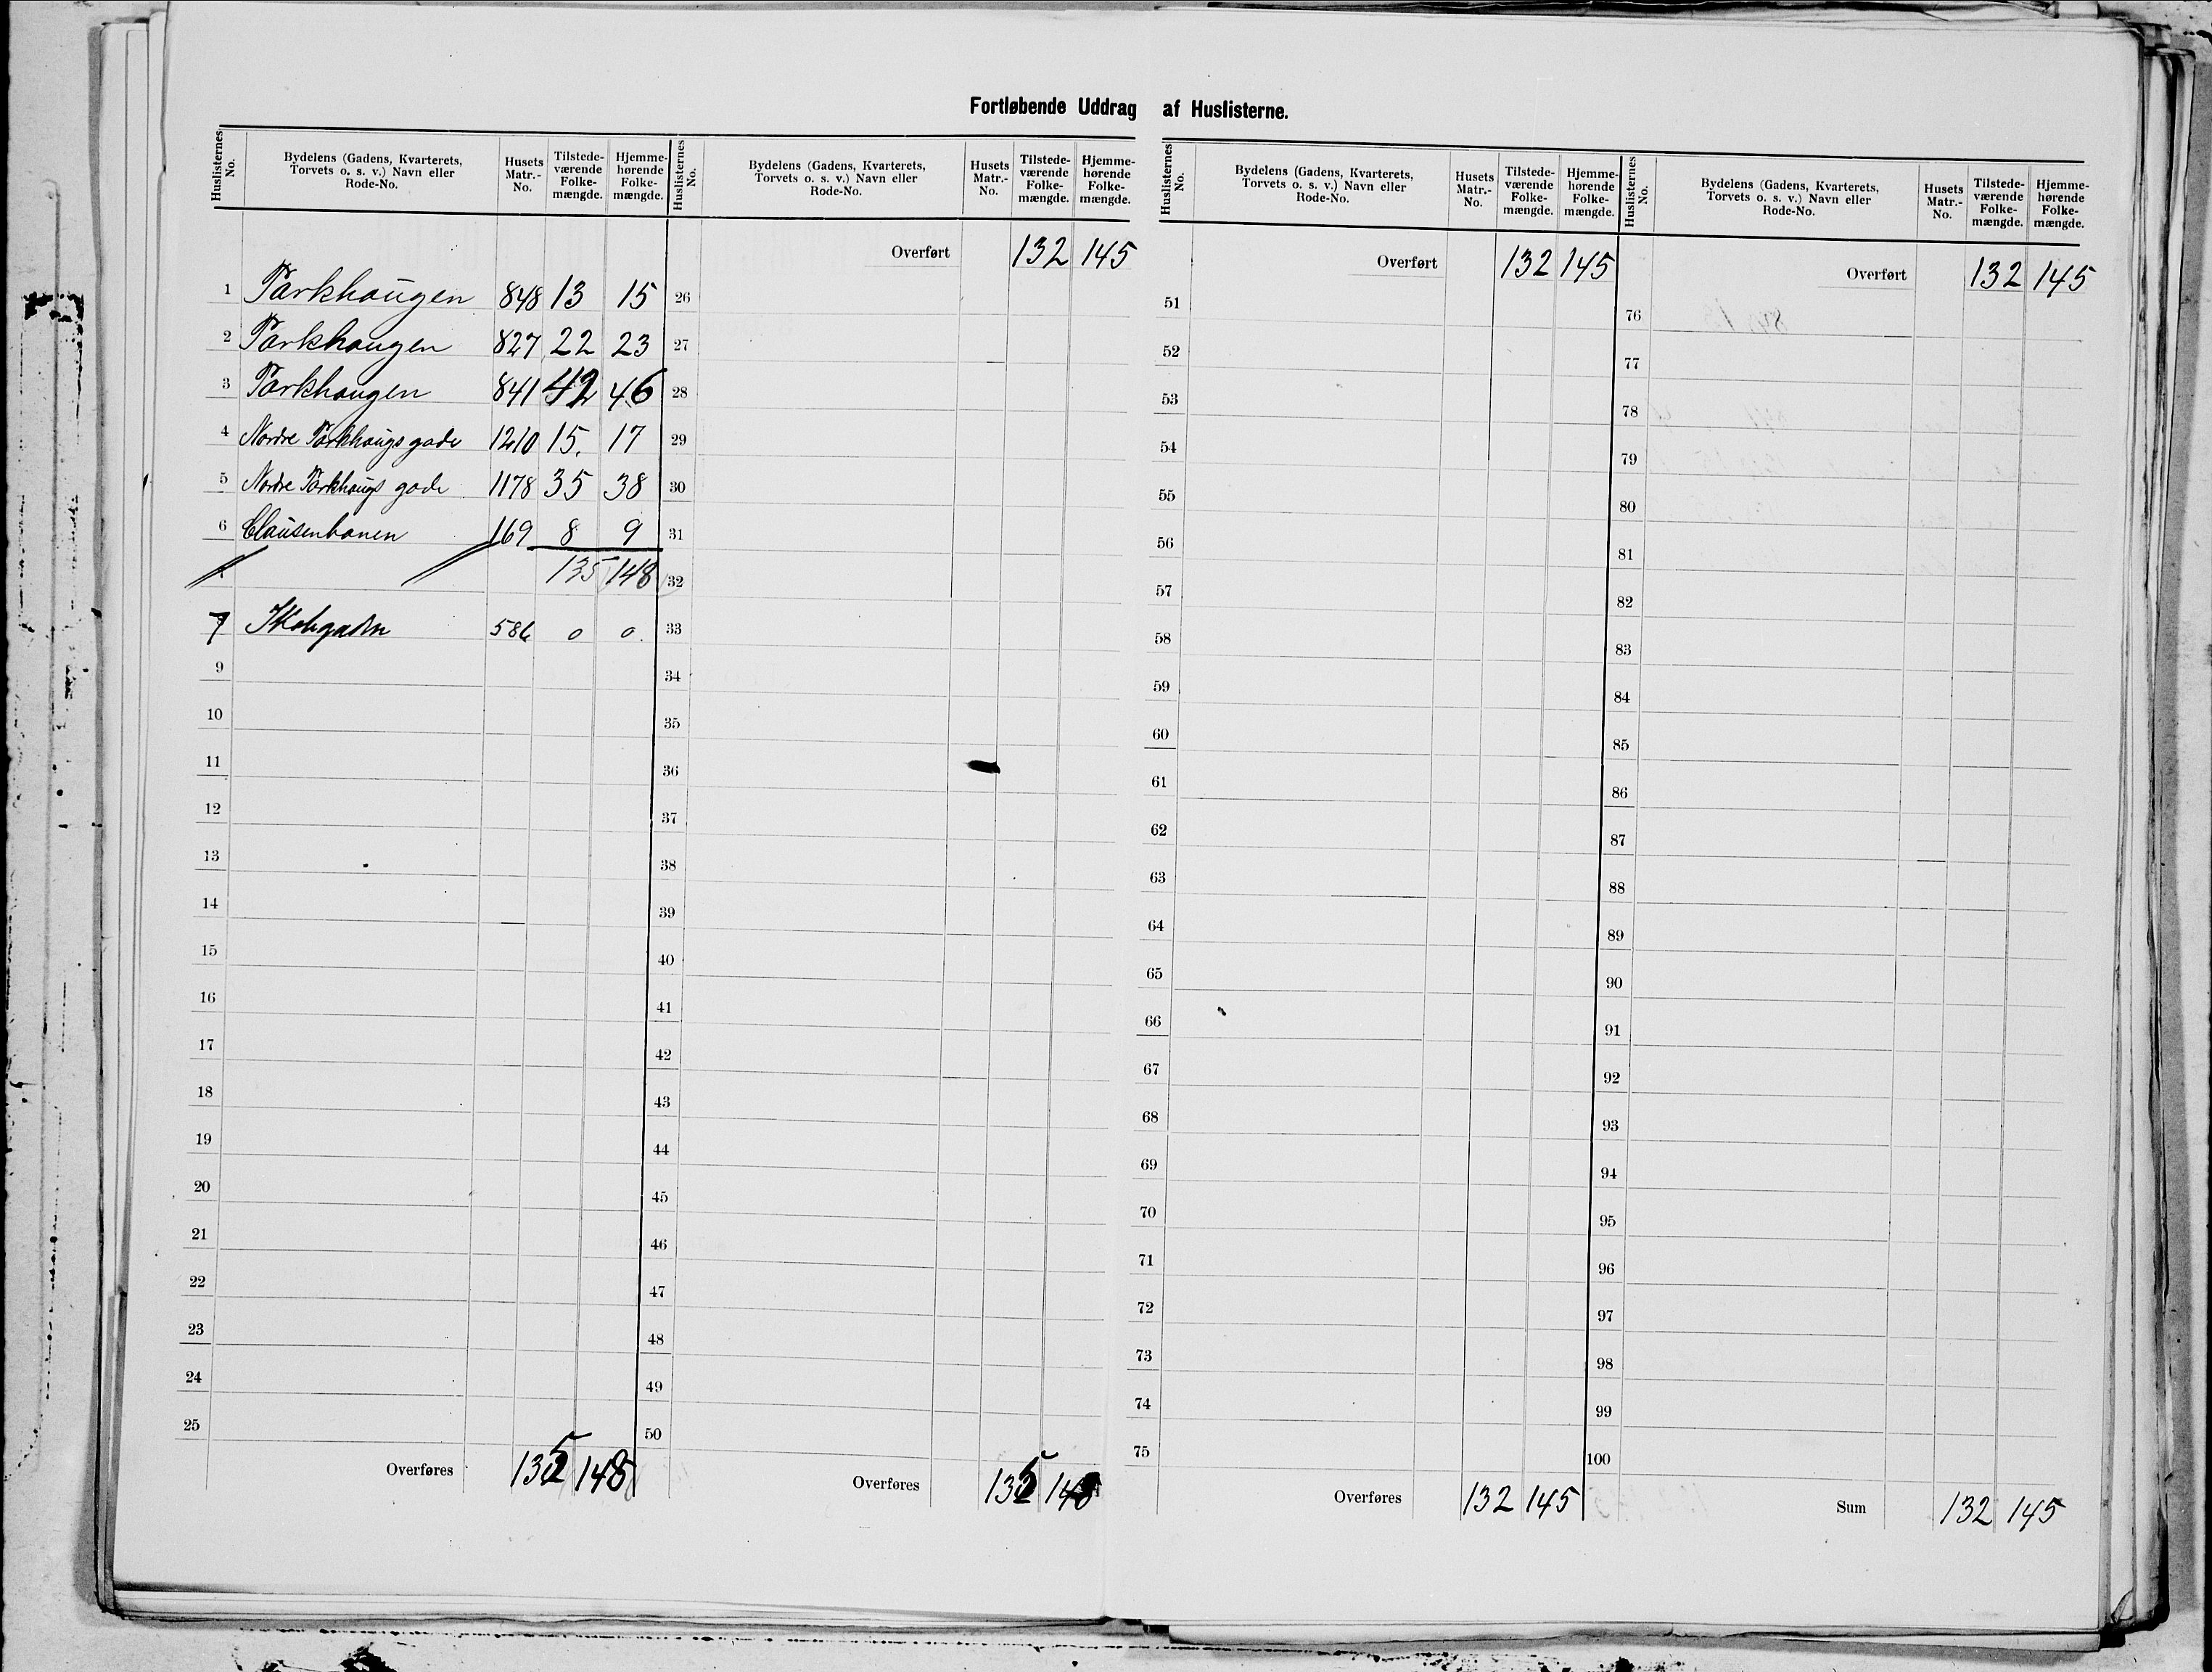 Fortløbende Uddrag af Huslisterne.
Huslisternes No. Bydelens (Gadens, Kvarterets, Torvets o. s. v.) Navn eller Rode-No. Husets Matr.-No. Tilstedeværende Folkemængde. Hjemmehørende Folkemængde.
1 Parkhaugen 848 13 15
2 Parkhaugen 827 22 23
3 Parkhaugen 841 42 46
4 Nordre Parkhaugs gade 1210 15. 17
5 Nordre Parkhaugs gade 1178 35 38
6 Clausenbanen 169 8 9
135 148
7 586 0 0
9
10
11
12
13
14
15
16
17
18
19
20
21
22
23
24
25
Overføres 135 148
Huslisternes No. Bydelens (Gadens, Kvarterets, Torvets o. s. v.) Navn eller Rode-No. Husets Matr.-No. Tilstedeværende Folkemængde. Hjemmehørende Folkemængde.
Overført 132 145
26
27
28
29
30
31
32
33
34
35
36
37
38
39
40
41
42
43
44
45
46
47
48
49
50
Overføres 135 148
Huslisternes No. Bydelens (Gadens, Kvarterets, Torvets o. s. v.) Navn eller Rode-No. Husets Matr.-No. Tilstedeværende Folkemængde. Hjemmehørende Folkemængde.
Overført 132 145
51
52
53
54
55
56
57
58
59
60
61
62
63
64
65
66
67
68
69
70
71
72
73
74
75
Overføres 132 145
Huslisternes No. Bydelens (Gadens, Kvarterets, Torvets o. s. v.) Navn eller Rode-No. Husets Matr.-No. Tilstedeværende Folkemængde. Hjemmehørende Folkemængde.
Overført 132 145
76
77
78
79
80
81
82
83
84
85
86
87
88
89
90
91
92
93
94
95
96
97
98
99
100
Sum 132 145